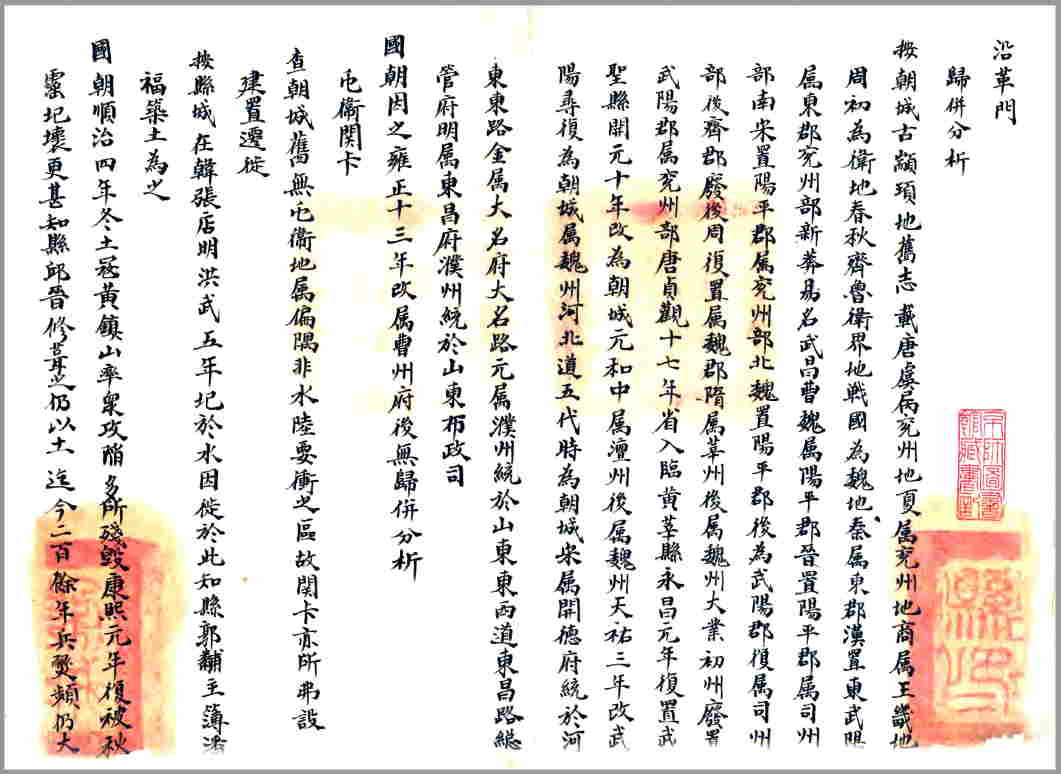 沿革門
歸併分析
按朝城古顓頊地舊志載唐虞為兖州地夏属兖州地商属王畿地
周初為衛地春秋齊魯衛界地戰國為魏地秦属東郡漢置東武陽
属東郡兖州部新莽易名武昌曹魏属陽平郡晉置陽平郡属司州
部南宋置陽平郡属兖州部北魏置陽平郡後為武陽郡復属司州
部後齊郡廢後周復置属魏郡隋属莘州後属魏州大業初州廢置
武陽郡属兖州部唐貞觀十七年省入臨黄莘縣永昌元年復置武
聖縣開元十年改為朝城元和中属澶州後属魏州天祐三年改武
陽尋復為朝城属魏州河北道五代時為朝城宋属開德府統於河
東東路金属大名府大名路元属濮州統於山東東西道東昌路總
管府明属東昌府濮州統於山東布政司
國朝因之雍正十三年改属曹州府後無歸併分析
屯衛関卡
查朝城舊無屯衛地属偏隅非水陸要衝之區故関卡亦所弗設
建置遷徙
按縣城在韓張店明洪武五年圮於水因徙於此知縣郭黼主簿潘
福築土為之
國朝順治四年冬土寇黄鎮山率衆攻陷多所殘毀康熙元年復被秋
霪圮壞更甚知縣邱晉修葺之仍以土迄今二百餘年兵燹頻仍大
縣印